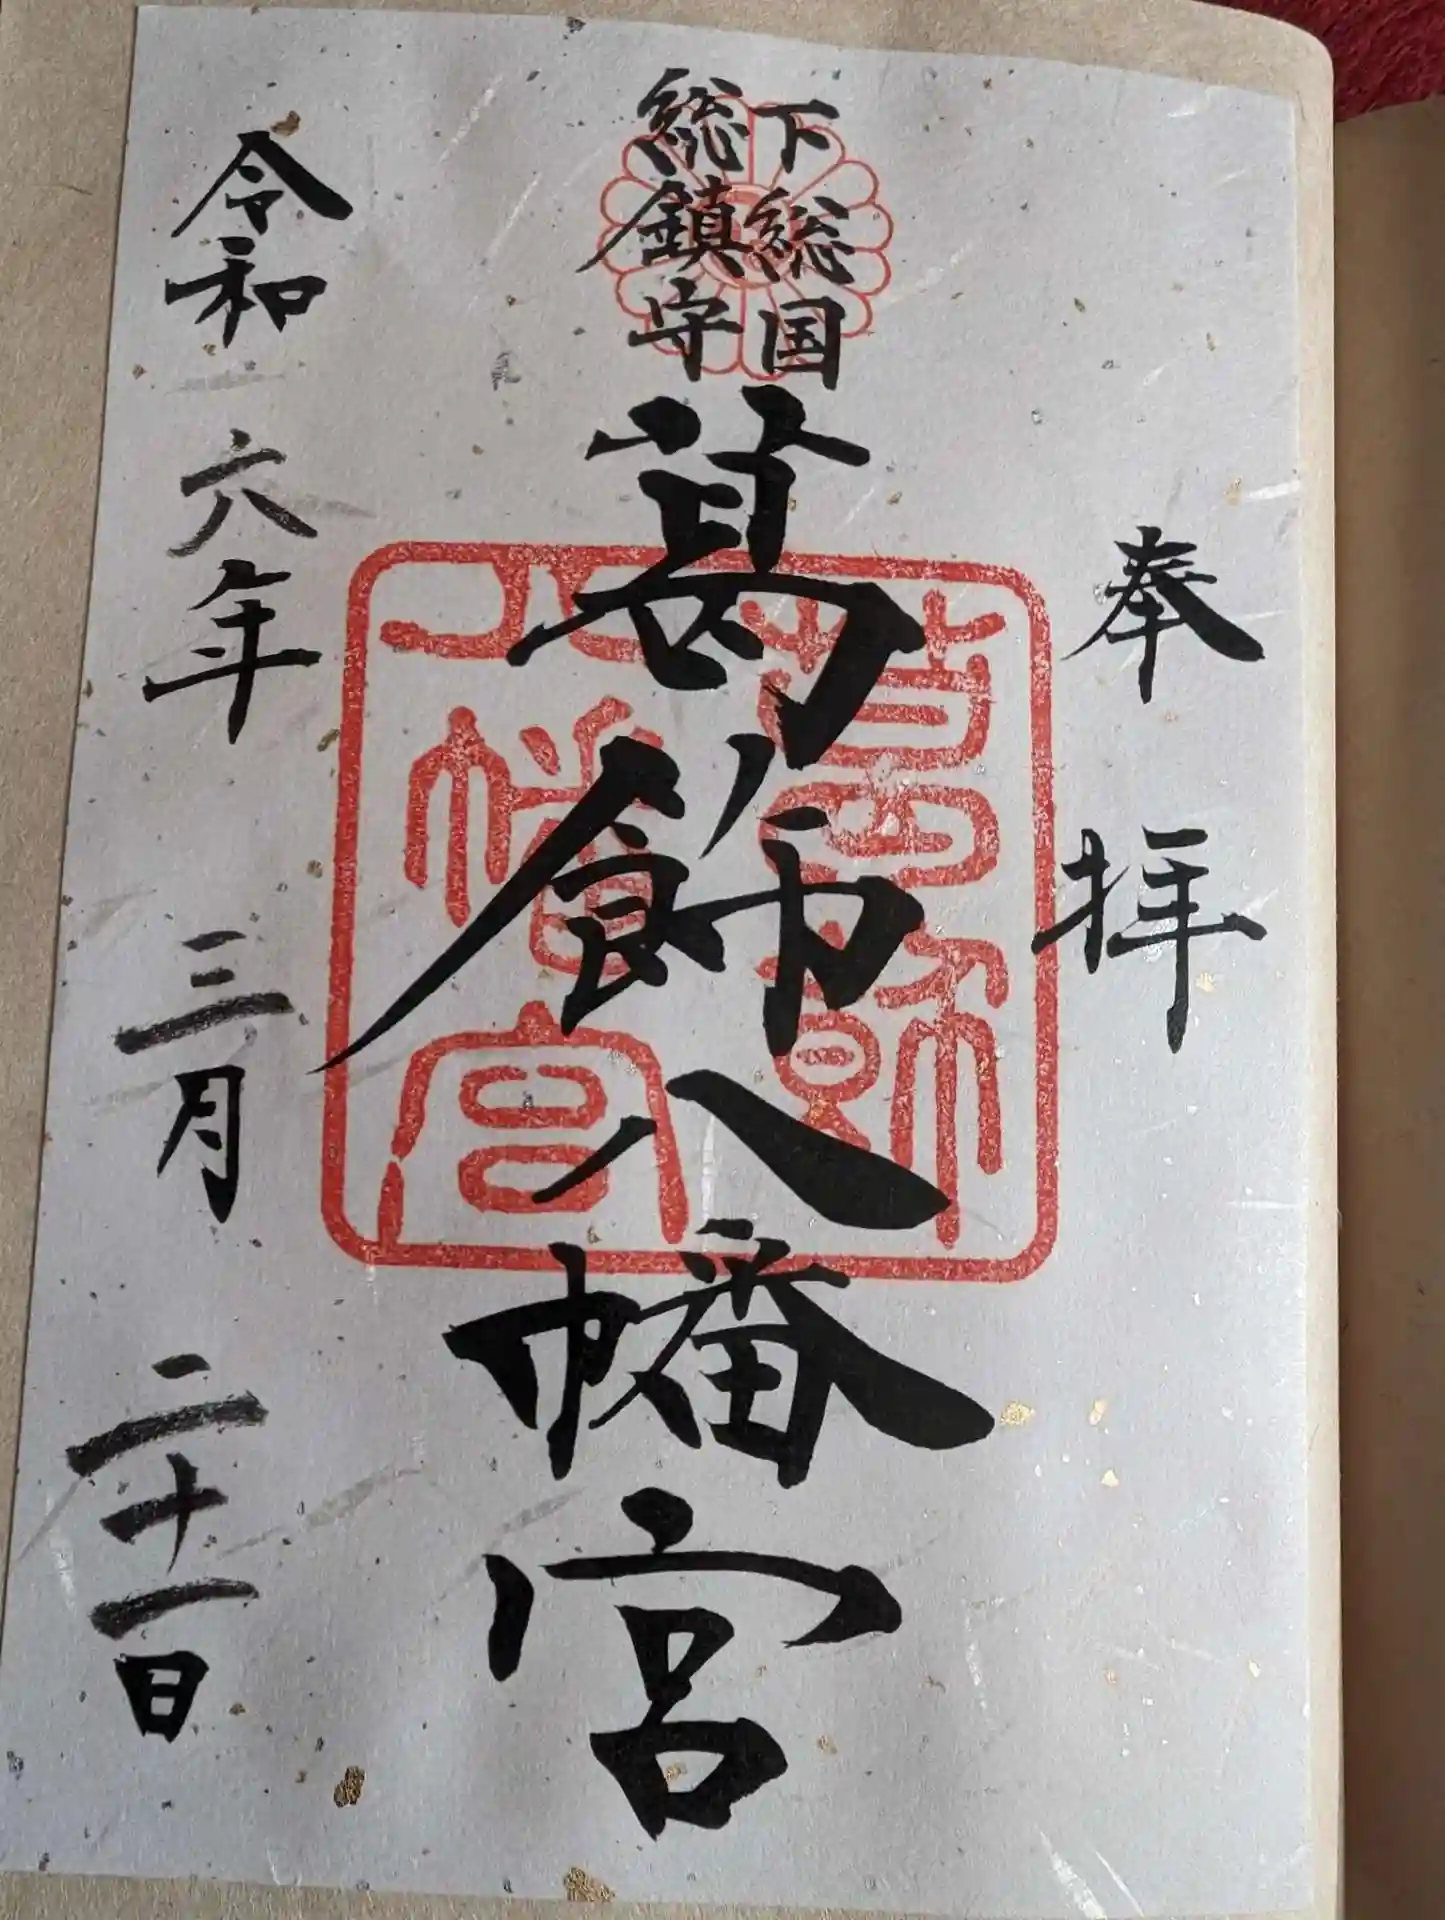 奉拝
下総国
総鎮守
葛飾八幡宮
葛飾
八幡宮
令和六年三月二十一日